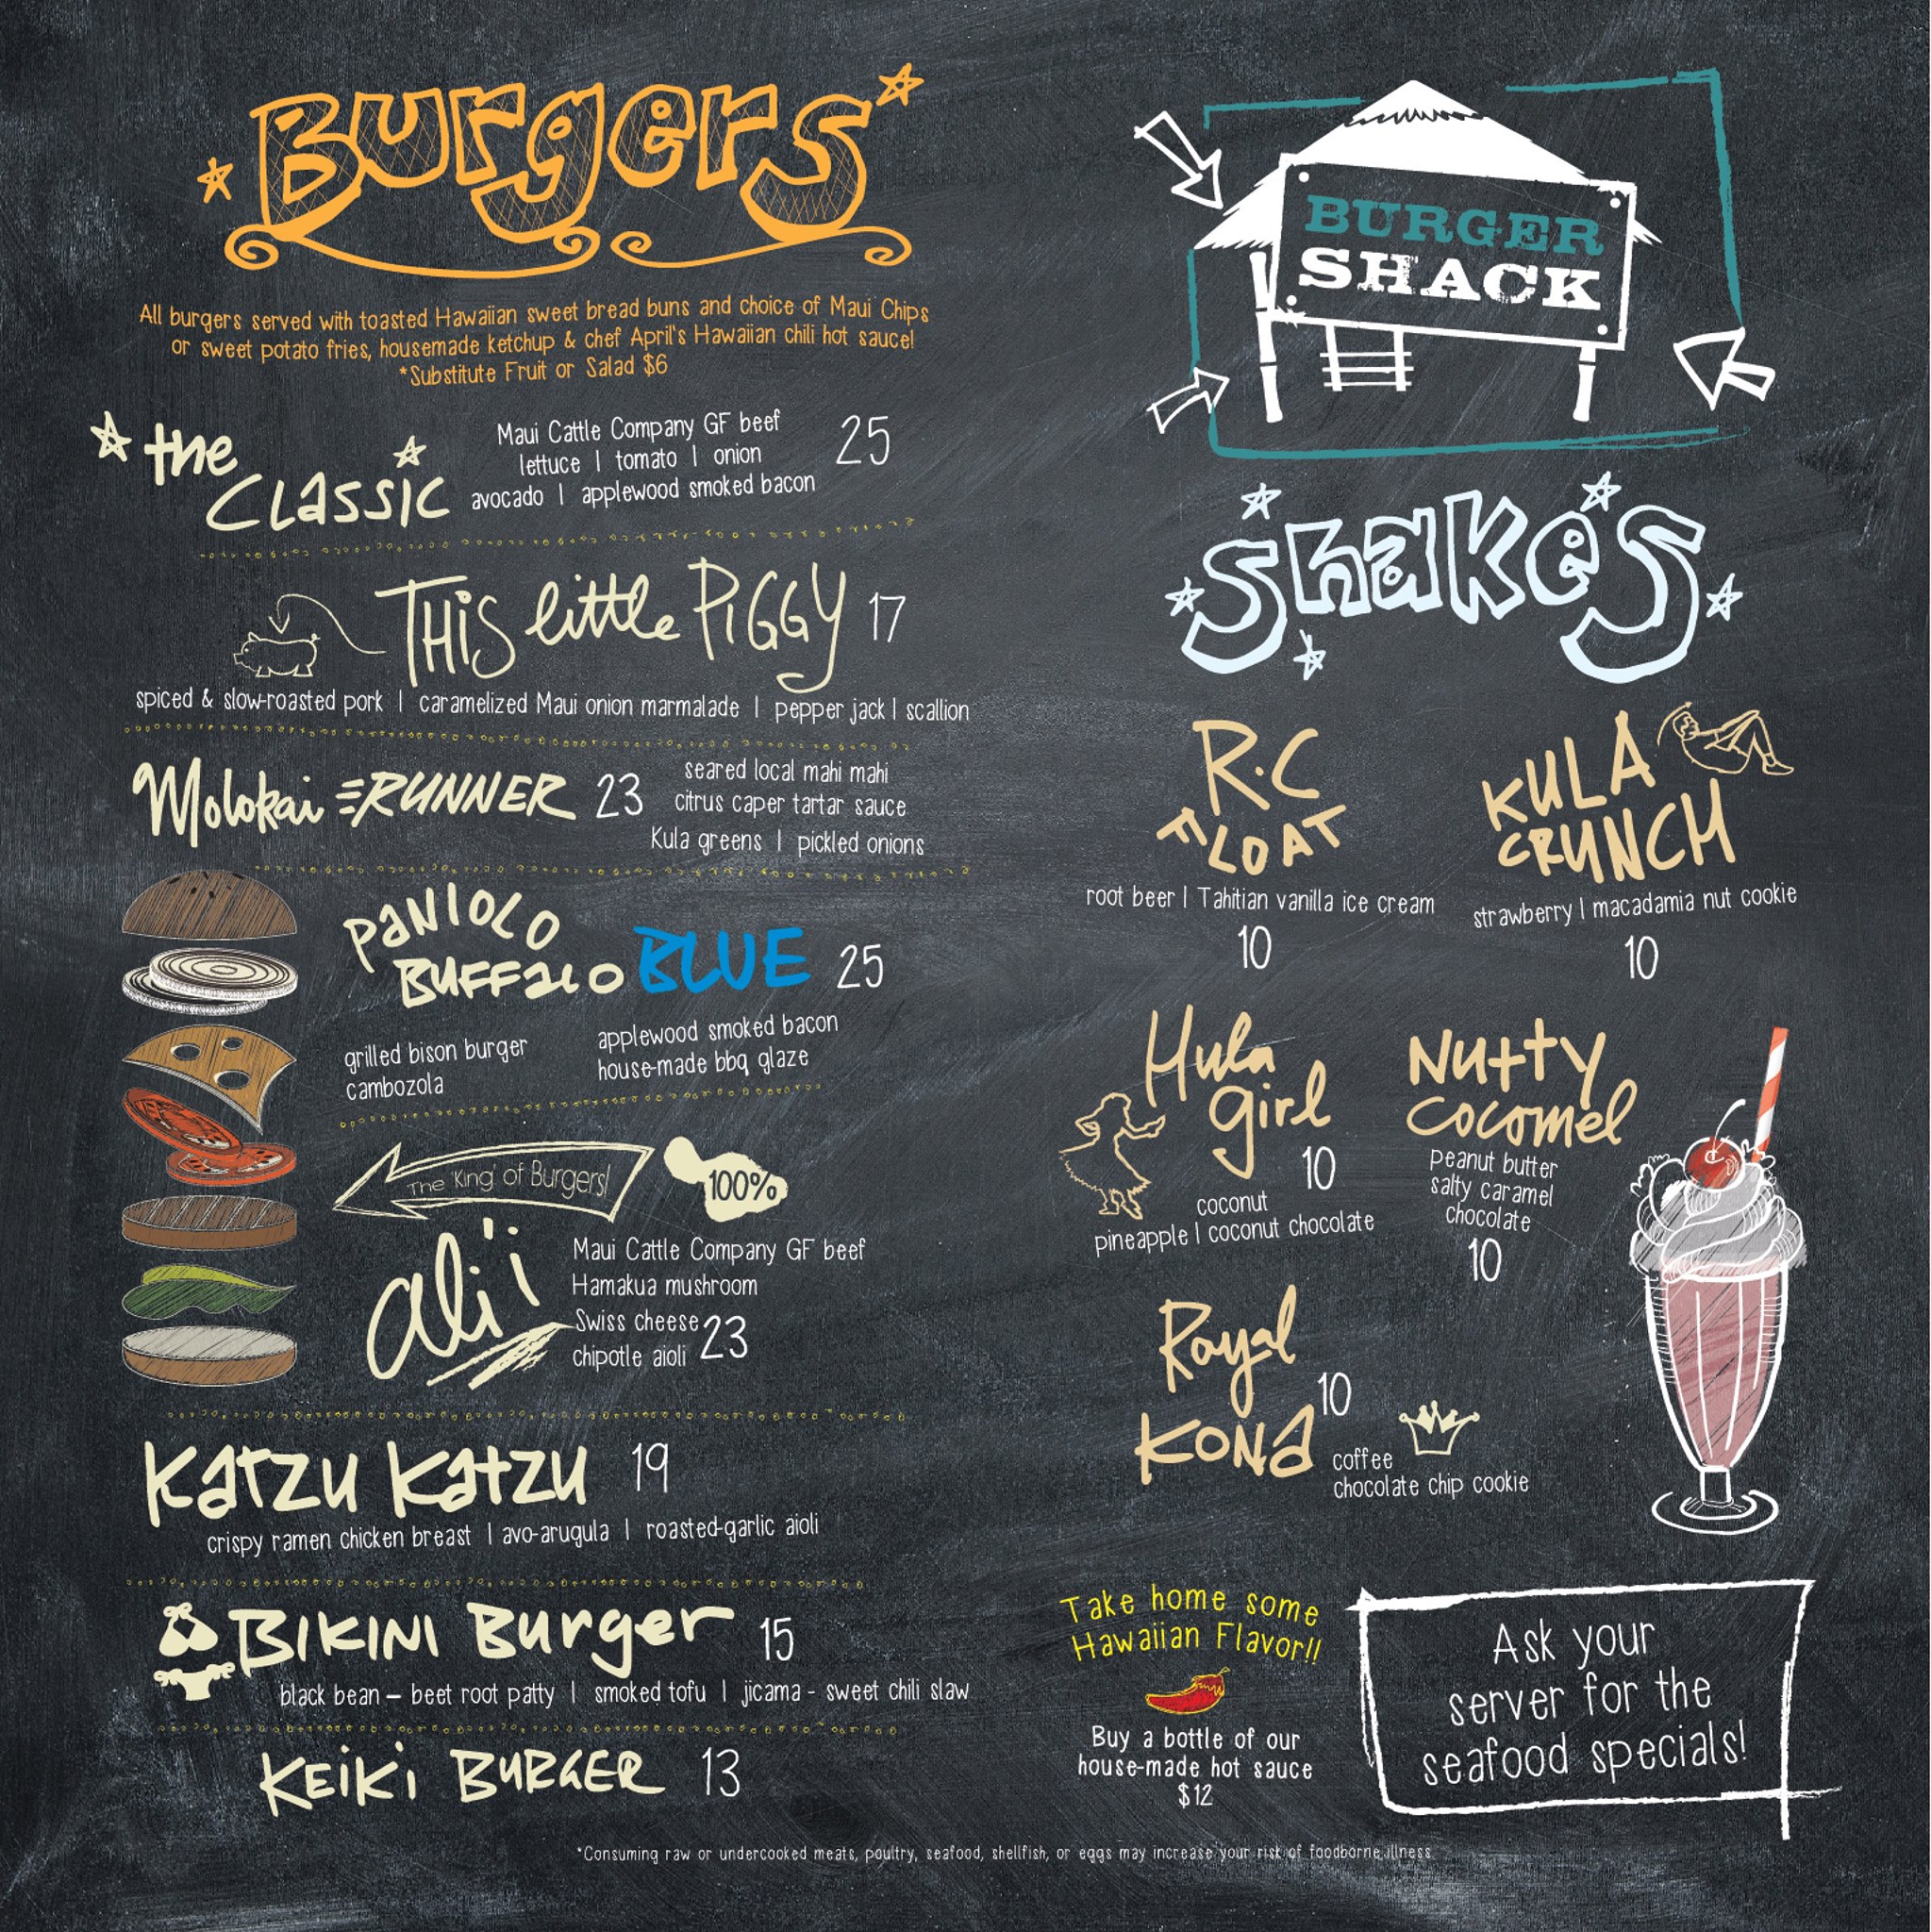 Burgers
All burgers served with toasted Hawaiian sweet bread buns and choice of Maui Chips
or sweet potato fries, housemade ketchup & chef April's Hawaiian chili hot sauce!
*Substitute Fruit or Salad $6
the
Classic
Maui Cattle Company GF beef
lettuce | tomato | onion
avocado | applewood smoked bacon
25
THiS little PiGGY 17
spiced & slow-roasted pork | caramelized Maui onion marmalade | pepper jack | scallion
Molokai RUNNER 23
seared local mahi mahi
citrus caper tartar sauce
Kula greens | pickled onions
PANIOLO
BUFFALO BLUE 25
grilled bison burger
cambozola
applewood smoked bacon
house-made bbq glaze
The 'King' of Burgers!
100%
ali'i
Maui Cattle Company GF beef
Hamakua mushroom
Swiss cheese
chipotle aioli
23
Katzu Katzu 19
crispy ramen chicken breast | avo-arugula | roasted-garlic aioli
BIKINI Burger 15
black bean – beet root patty | smoked tofu | jicama - sweet chili slaw
KEiKi BURGER 13
BURGER
SHACK
Shakes
R.C
FLOAT
root beer | Tahitian vanilla ice cream
10
KULA
CRUNCH
strawberry | macadamia nut cookie
10
Hula
girl
10
coconut
pineapple | coconut chocolate
Nutty
Cocomel
peanut butter
salty caramel
chocolate
10
Royal
KONA
10
coffee
chocolate chip cookie
Take home some
Hawaiian Flavor!!
Buy a bottle of our
house-made hot sauce
$12
Ask your
server for the
seafood specials!
*Consuming raw or undercooked meats, poultry, seafood, shellfish, or eggs may increase your risk of foodborne illness.